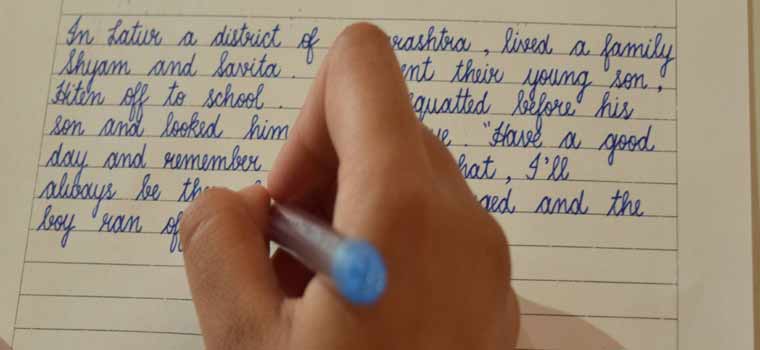 In Latur a district of rashtra, lived a family
Shyam and Savita. ent their young son,
Hiten off to school. quatted before his
son and looked him ye. "Have a good
day and remember hat, I'll
always be the ged and the
boy ran of